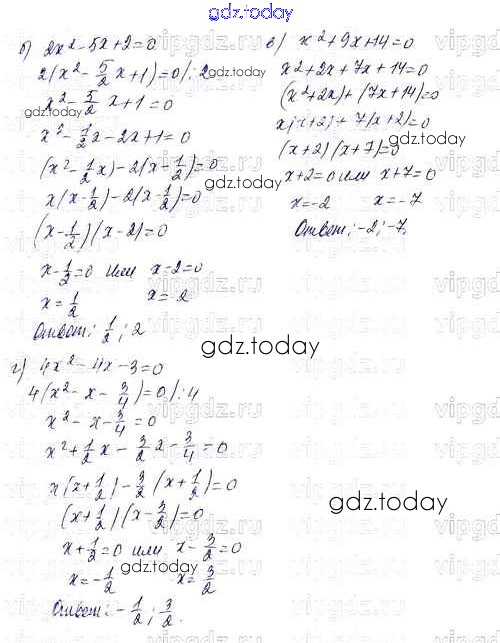 gdz.today
б) 2x² - 5x + 2 = 0
2(x² - 5/2 x + 1) = 0 /: 2
x² - 5/2 x + 1 = 0
x² - 1/2 x - 2x + 1 = 0
(x² - 1/2 x) - 2(x - 1/2) = 0
x(x - 1/2) - 2(x - 1/2) = 0
(x - 1/2)(x - 2) = 0
x - 1/2 = 0 или x = 2 = 0
x = 1/2 x = 2
Ответ: 1/2; 2
в) x² + 9x + 14 = 0
x² + 2x + 7x + 14 = 0
(x² + 2x) + (7x + 14) = 0
x(x + 2) + 7(x + 2) = 0
(x + 2)(x + 7) = 0
x + 2 = 0 или x + 7 = 0
x = -2 x = -7
Ответ: -2; -7.
г) 4x² - 4x - 3 = 0
4(x² - x - 3/4) = 0 /: 4
x² - x - 3/4 = 0
x² + 1/2 x - 3/2 x - 3/4 = 0
x(x + 1/2) - 3/2 (x + 1/2) = 0
(x + 1/2)(x - 3/2) = 0
x + 1/2 = 0 или x - 3/2 = 0
x = -1/2 x = 3/2
Ответ: -1/2; 3/2.
gdz.today
gdz.today
gdz.today
gdz.today
gdz.today
gdz.today
vipgdz.ru